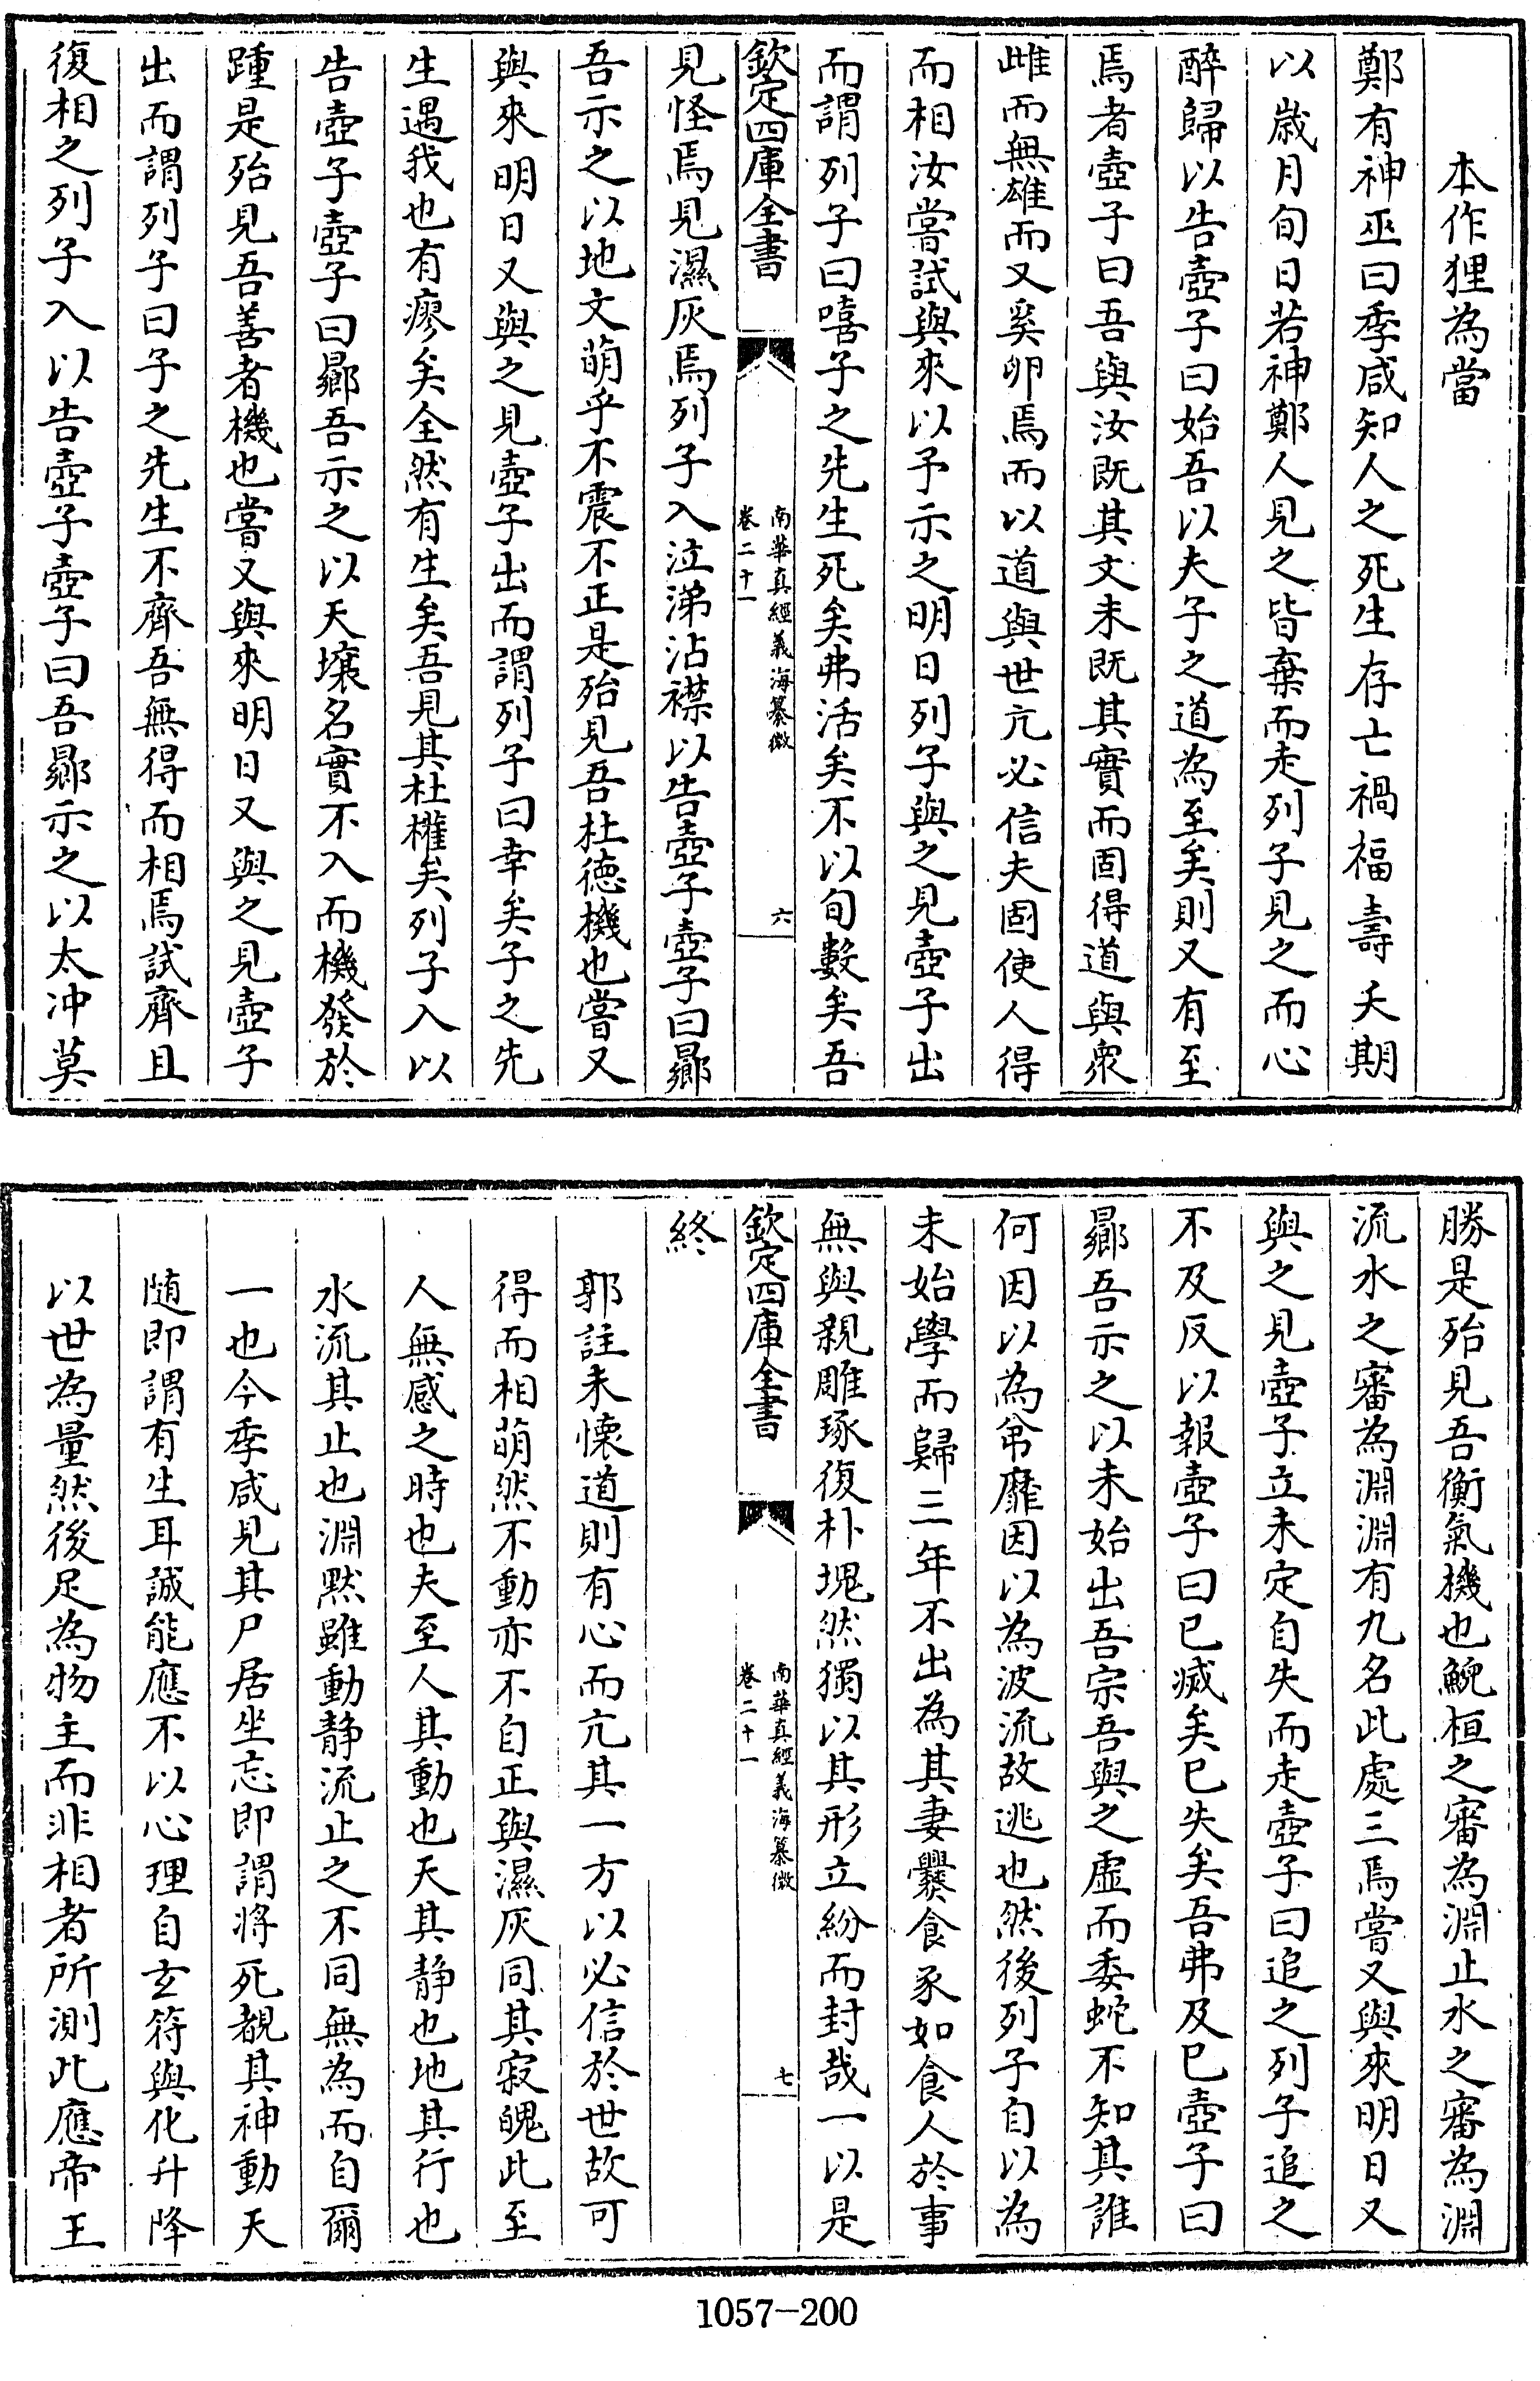 本作狸為當
鄭有神巫曰季咸知人之死生存亡禍福壽夭期
以歲月旬日若神鄭人見之皆棄而走列子見之而心
醉歸以告壺子曰始吾以夫子之道為至矣則又有至
焉者壺子曰吾與汝既其文未既其實而固得道與衆
雌而無雄而又奚卵焉而以道與世亢必信夫固使人得
而相汝嘗試與來以予示之明日列子與之見壺子出
而謂列子曰嘻子之先生死矣弗活矣不以旬數矣吾
欽定四庫全書
南華真經義海纂微
卷二十一
六
見怪焉見濕灰焉列子入泣涕沾襟以告壺子壺子曰鄉
吾示之以地文萌乎不震不正是殆見吾杜德機也嘗又
與來明日又與之見壺子出而謂列子曰幸矣子之先
生遇我也有瘳矣全然有生矣吾見其杜權矣列子入以
告壺子壺子曰鄉吾示之以天壤名實不入而機發於
踵是殆見吾善者機也嘗又與來明日又與之見壺子
出而謂列子曰子之先生不齊吾無得而相焉試齊且
復相之列子入以告壺子壺子曰吾鄉示之以太冲莫
勝是殆見吾衡氣機也鯢桓之審為淵止水之審為淵
流水之審為淵淵有九名此處三焉嘗又與來明日又
與之見壺子立未定自失而走壺子曰追之列子追之
不及反以報壺子曰已滅矣已失矣吾弗及已壺子曰
鄉吾示之以未始出吾宗吾與之虛而委蛇不知其誰
何因以為弟靡因以為波流故逃也然後列子自以為
未始學而歸三年不出為其妻爨食豕如食人於事
無與親雕琢復朴塊然獨以其形立紛而封哉一以是
欽定四庫全書
南華真經義海纂微
卷二十一
七
終
郭註未懷道則有心而亢其一方以必信於世故可
得而相萌然不動亦不自正與濕灰同其寂魄此至
人無感之時也夫至人其動也天其静也地其行也
水流其止也淵默雖動静流止之不同無為而自爾
一也今季咸見其尸居坐忘即謂將死覩其神動天
随即謂有生耳誠能應不以心理自玄符與化升降
以世為量然後足為物主而非相者所測此應帝王
1057-200